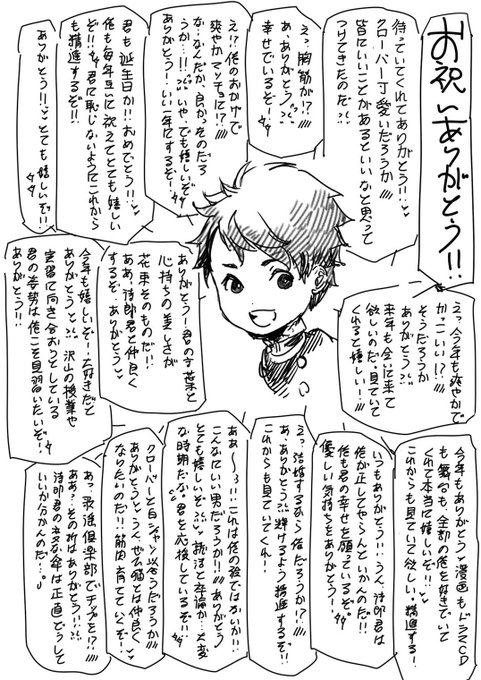 お祝いありがとう!!
待っていてくれてありがとう!!
クローバー丁愛いだろうか
皆にいいことがあるといいなと思って
つけてきたのだ
えっ胸筋が!?
あ、ありがとう
幸せでいるぞ!
え!?俺のおかげで
爽やかマッチョに!?
な…なんだか、良かったのだろ
うか…!!いや、でも嬉しいぞ!
ありがとう!いい一年にするぞ!
君も誕生日か!!おめでとう!!
俺も毎年互いに祝えてとても嬉しい
ぞ!!君に恥じないようにこれから
も精進するぞ!!
ありがとう!!とても嬉しいぞ!!
えっ今年も爽やかで
かっこいい!?
そうだろうか
ありがとう
来年も会いに来て
欲しいのだ、見ていて
くれると嬉しい!
ありがとう!君の言葉と
心持ちの美しさが
花束そのものだ!!
ああ!詩郎君と仲良く
するぞ、ありがとう
今年も嬉しいぞ!大好きだと
ありがとう 沢山の授業や
実習に向き合おうとしている
君の姿勢は俺こそ見習いたいぞ!
ありがとう!!
今年もありがとう 漫画もドラマCD
も舞台も、全部の俺を好きでいて
くれて本当に嬉しいぞ!!
これからも見ていて欲しい。精進する!
いつもありがとう!!うん、詩郎君は
俺が正してやらんといかんのだ!!
俺も君の幸せを願っているぞ。
優しい気持ちをありがとう!
えっ
あ、ありがとう、輝けるよう精進するぞ!!
これからも見ていてくれ!
ああ〜!!これは俺の絵ではないか!!
こんなにいい男だろうか!!ありがとう
とても嬉しいぞ 就活と卒論か…大変
な時期だな。君を応援しているぞ!!
クローバーと白ジャン似合うだろうか
ありがとう
なりたいのだ!!筋肉育てていくぞ!
あっ、放課後倶楽部でチップを!?
ああ?その折はありがとう!!
いいか分からんのだ…。